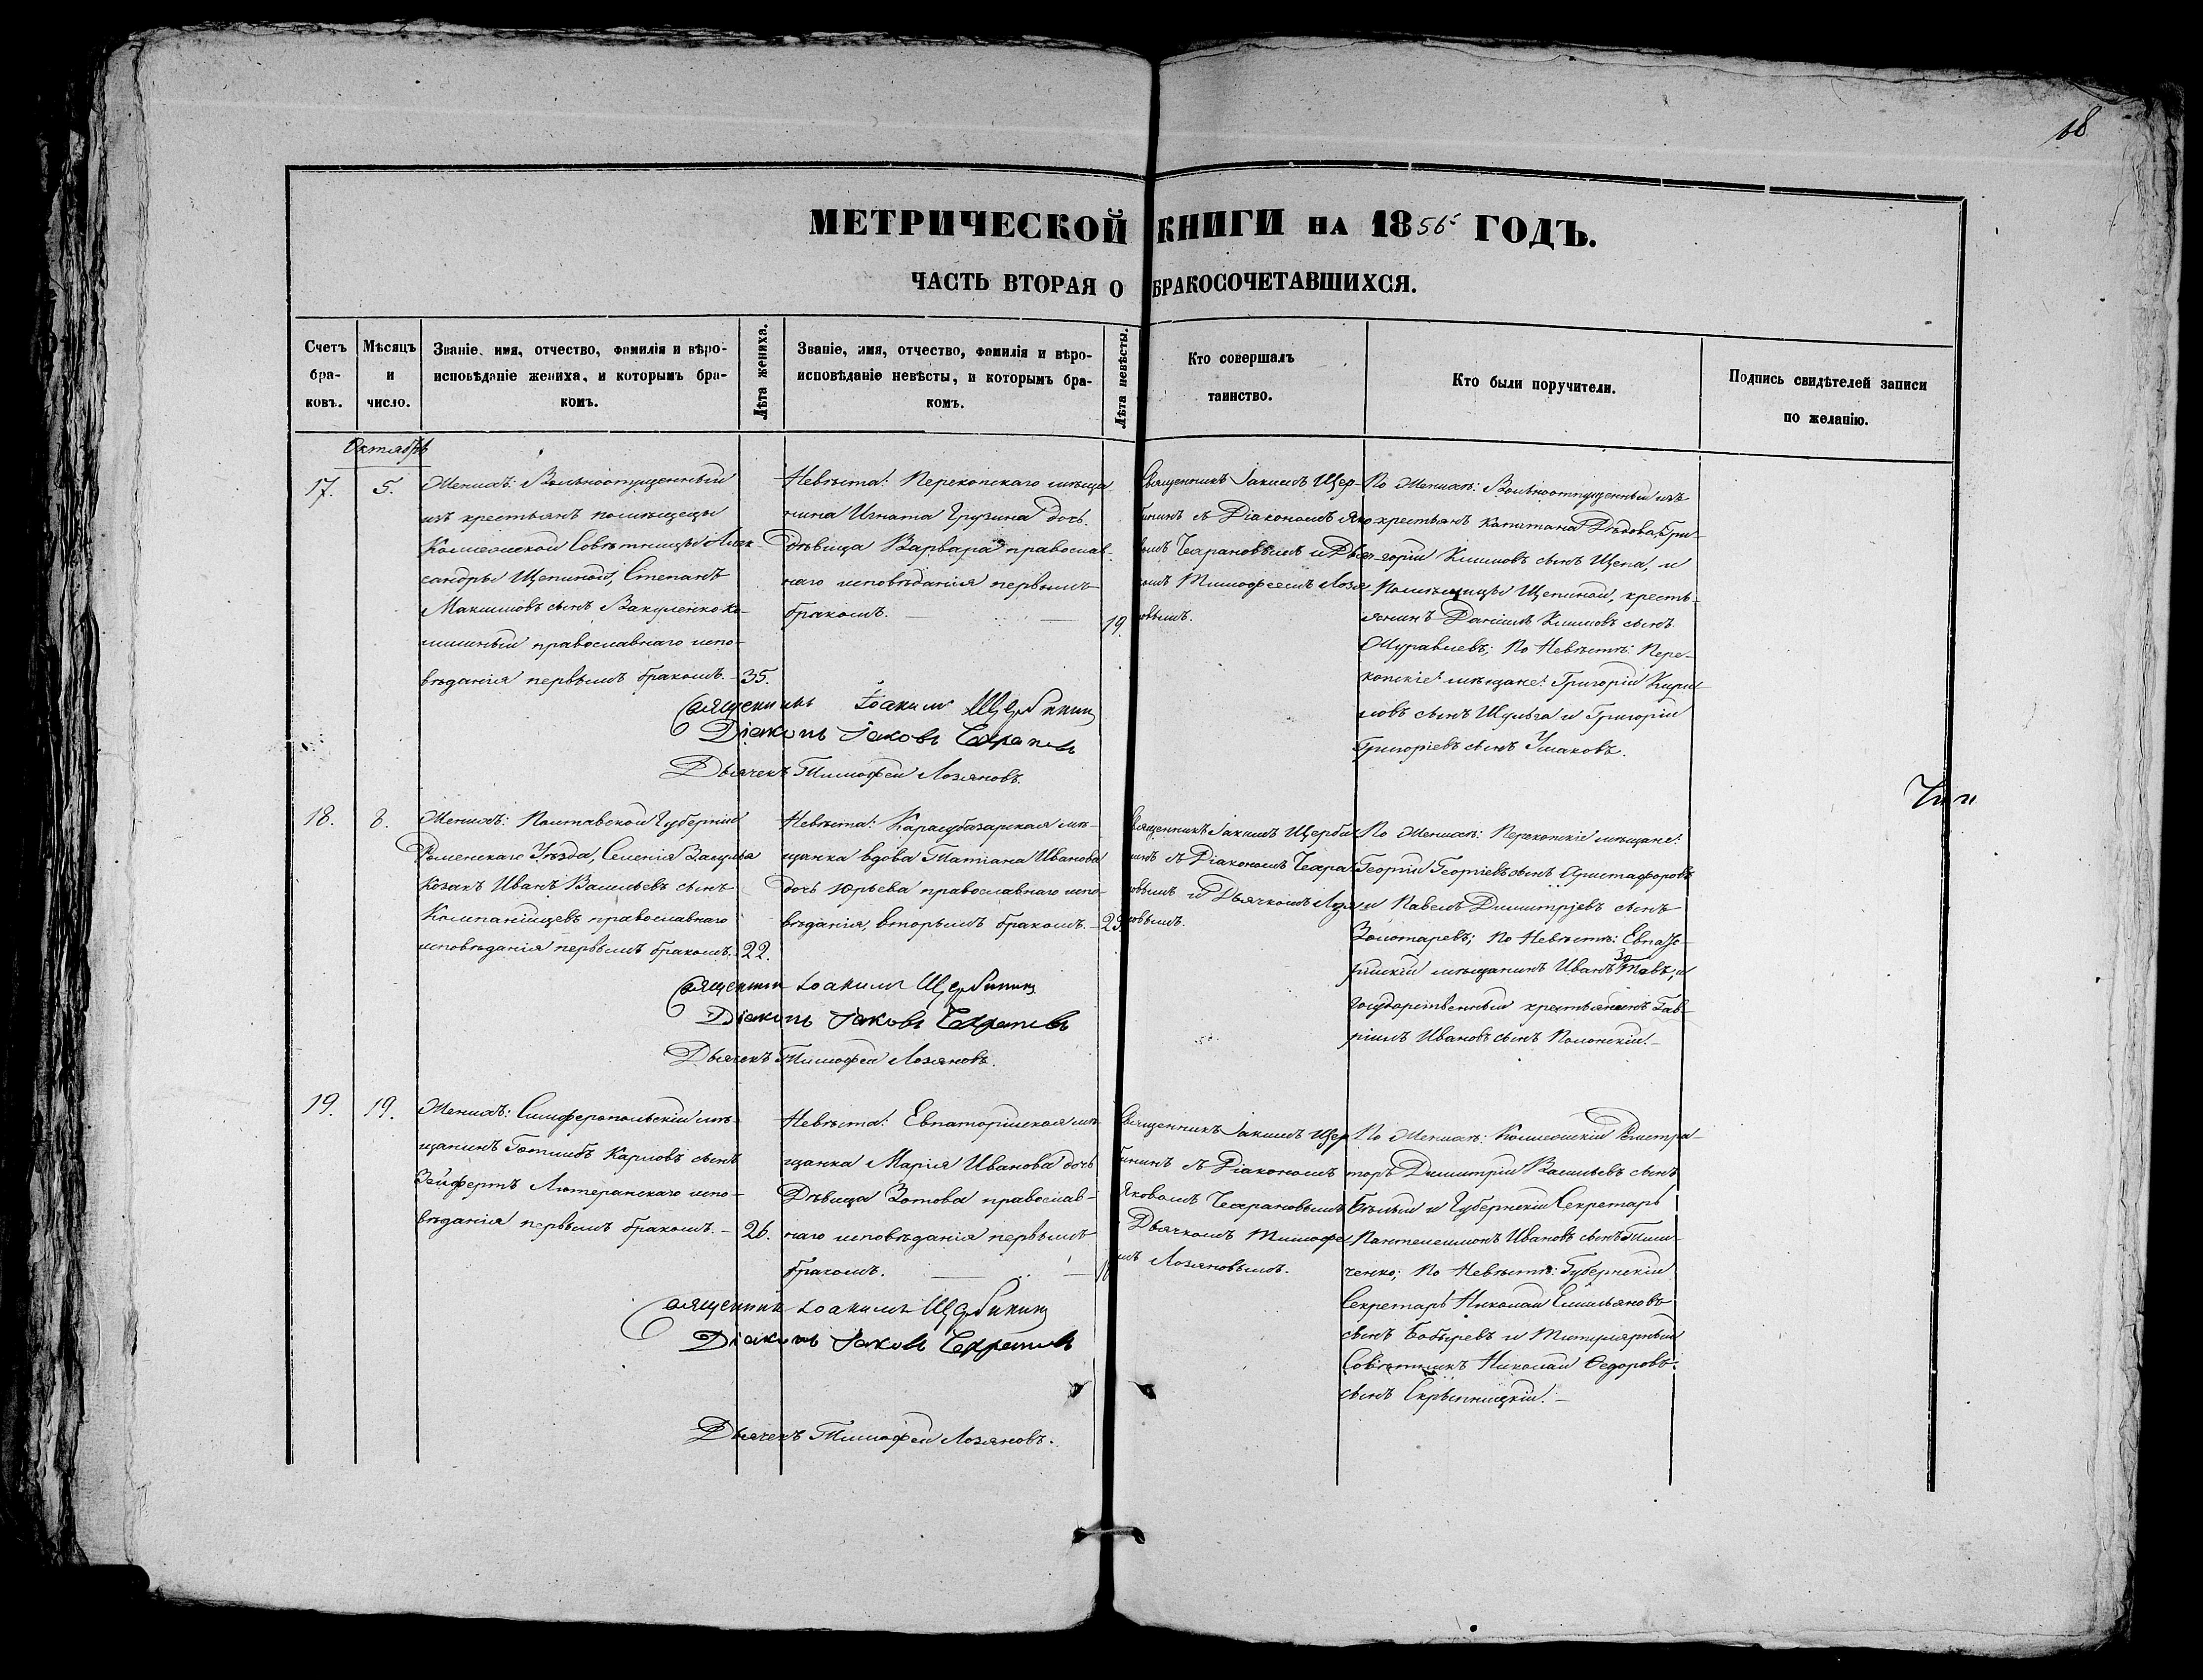 МЕТРИЧЕСКОЙ КНИГИ НА 1856 ГОДЪ.
ЧАСТЬ ВТОРАЯ О БРАКОСОЧЕТАВШИХСЯ.
Счетъ бра- ковъ.
Мѣсяцъ и число.
Званіе, имя, отчество, фамилія и вѣро-
исповѣданіе жениха, и которымъ бра-
комъ.
Лѣта жениха.
Званіе, имя, отчество, фамилія и вѣро-
исповѣданіе невѣсты, и которымъ бра-
комъ.
Лѣта невѣсты.
Кто совершалъ
таинство.
Кто были поручители.
Подпись свидѣтелей записи
по желанію.
Октябрь
17.
5.
Женихъ: Вольноотпущенный
изъ крестьянъ помѣщицы
Совѣтницы Алек-
сандры Щепиной, Степанъ
Максимовъ сынъ Вакуленко
православнаго испо-
вѣданія первымъ бракомъ. 35.
Невѣста: Перекопскаго мѣща
нина Игната Грузина дочь
дѣвица Варвара православ-
наго исповѣданія первымъ
бракомъ.
19.
Священникъ Іакимъ Щер-
бининъ съ Діакономъ Яко
вомъ и Дьяч
комъ Тимофеемъ Лозя-
новымъ.
По Женихѣ: Вольноотпущенный изъ
крестьянъ Капитана Дѣдова, Гри-
горій Климовъ сынъ Щепа, и
Помѣщицы Щепиной, кресть-
янинъ Даніилъ Климовъ сынъ
Журавлевъ; По Невѣстѣ: Пере-
копскіе мѣщане: Григорій Кирил
ловъ сынъ Шульга и Григорій
Григоріевъ сынъ Ушаковъ.
Священникъ Іоакимъ Щербининъ
Діаконъ Іаковъ
Дьячекъ Тимофей Лозяновъ.
18.
8.
Женихъ: Полтавской Губерніи
Роменскаго Уѣзда, Селенія
Козакъ Иванъ Васильевъ сынъ
Компаніицевъ православнаго
исповѣданія первымъ бракомъ. 22.
Невѣста: Карасубазарская мѣ-
щанка вдова Татіана Иванова
дочь Юрьева православнаго испо-
вѣданія, вторымъ бракомъ.
Священникъ Іакимъ Щерби
нинъ съ Діакономъ
новымъ и Дьячкомъ Лозя
новымъ.
По Женихѣ: Перекопскіе мѣщане:
Георгій Георгіевъ сынъ
и Павелъ Димитріевъ сынъ
Золотаревъ; По Невѣстѣ: Евпато-
рійскій мѣщанинъ Иванъ Зотовъ, и
государственный крестьянинъ Гав-
ріилъ Ивановъ сынъ Полонскій.
Священникъ Іоакимъ Щербининъ
Діаконъ Іаковъ
Дьячекъ Тимофей Лозяновъ.
19.
19.
Женихъ: Симферопольскій мѣ-
щанинъ Готлибъ Карловъ сынъ
Зейфертъ Лютеранскаго испо-
вѣданія первымъ бракомъ. 26.
Невѣста: Евпаторійская мѣ
щанка Марія Иванова дочь
Дѣвица Зотова православ-
наго исповѣданія первымъ
бракомъ.
Священникъ Іакимъ Щер
бининъ съ Діакономъ
Яковомъ
Дьячкомъ Тимофе
мъ Лозяновымъ.
По Женихѣ: Коллежскій Регистра-
торъ Димитрій Васильевъ сынъ
Бѣлый и Губернскій Секретарь
Пантелеимонъ Ивановъ сынъ Тим-
ченко; По Невѣстѣ: Губернскій
Секретарь Николай Емельяновъ
сынъ Бобыревъ и Титулярный
Совѣтникъ Николай Ѳедоровъ
сынъ
Священникъ Іоакимъ Щербининъ
Діаконъ Іаковъ
Дьячекъ Тимофей Лозяновъ.